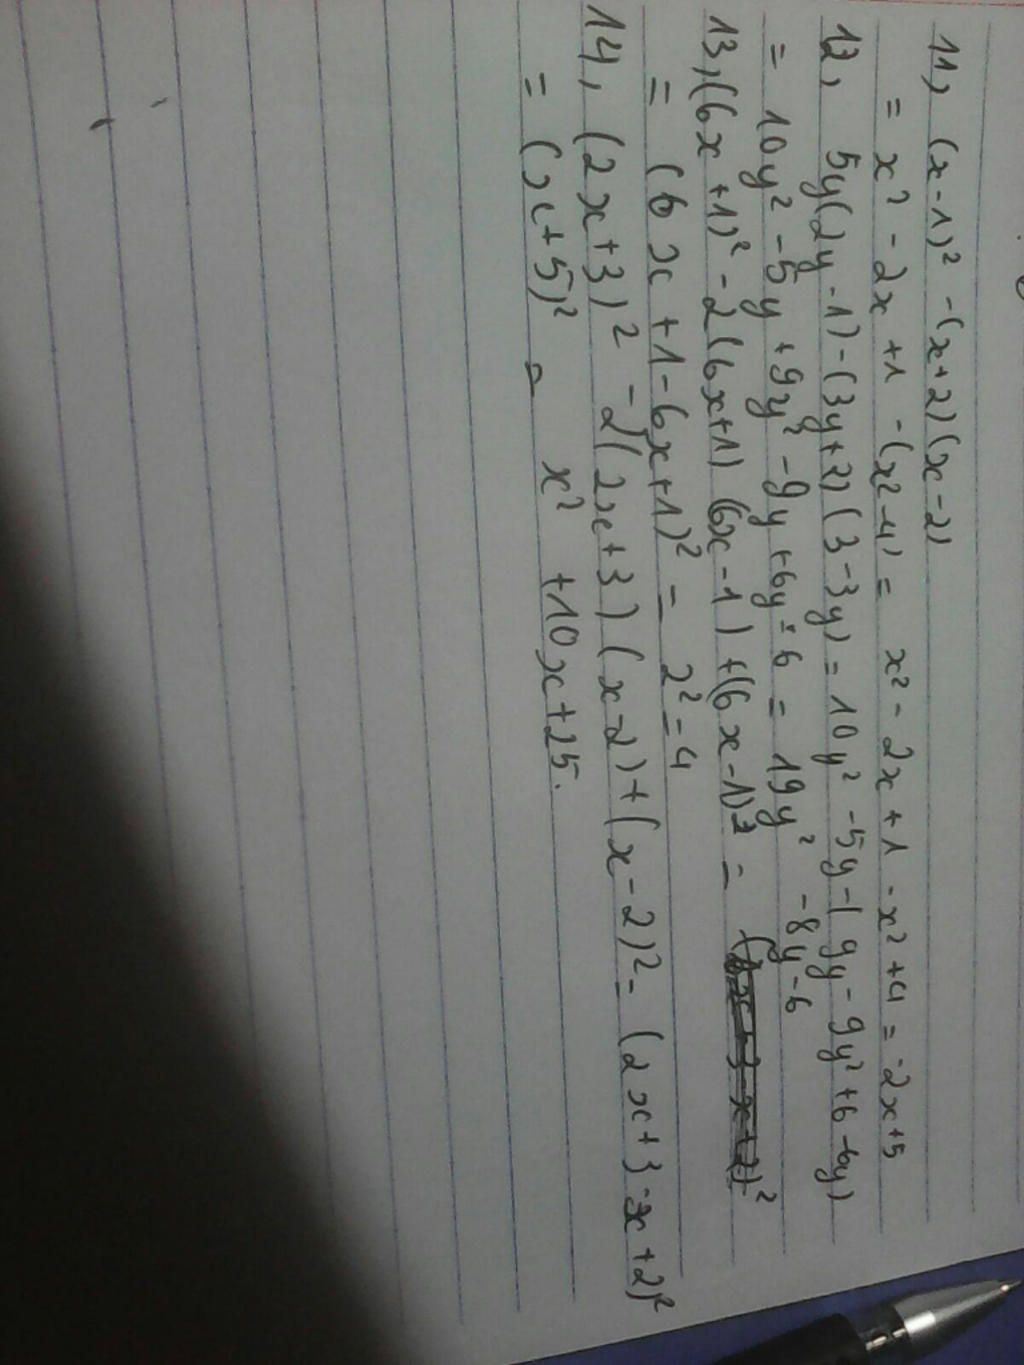 11, (x-1)² -(x+2)(x-2)
= x² - 2x +1 -(x²-4) = x² - 2x + 1 - x² +4 = -2x+5
12, 5y(2y-1) - (3y+2)(3-3y) = 10y² -5y -( 9y - 9y² +6 -6y)
= 10y² -5y +9y² -9y +6y - 6 = 19y² -8y -6
13, (6x +1)² - 2(6x+1) (6x-1) +(6x -1)² =
= (6x +1 - 6x+1)² = 2² = 4
14, (2x+3)² - 2(2x+3) (x-2) + (x-2)² = (2x+3-x+2)²
= (x+5)² = x² +10x+25.